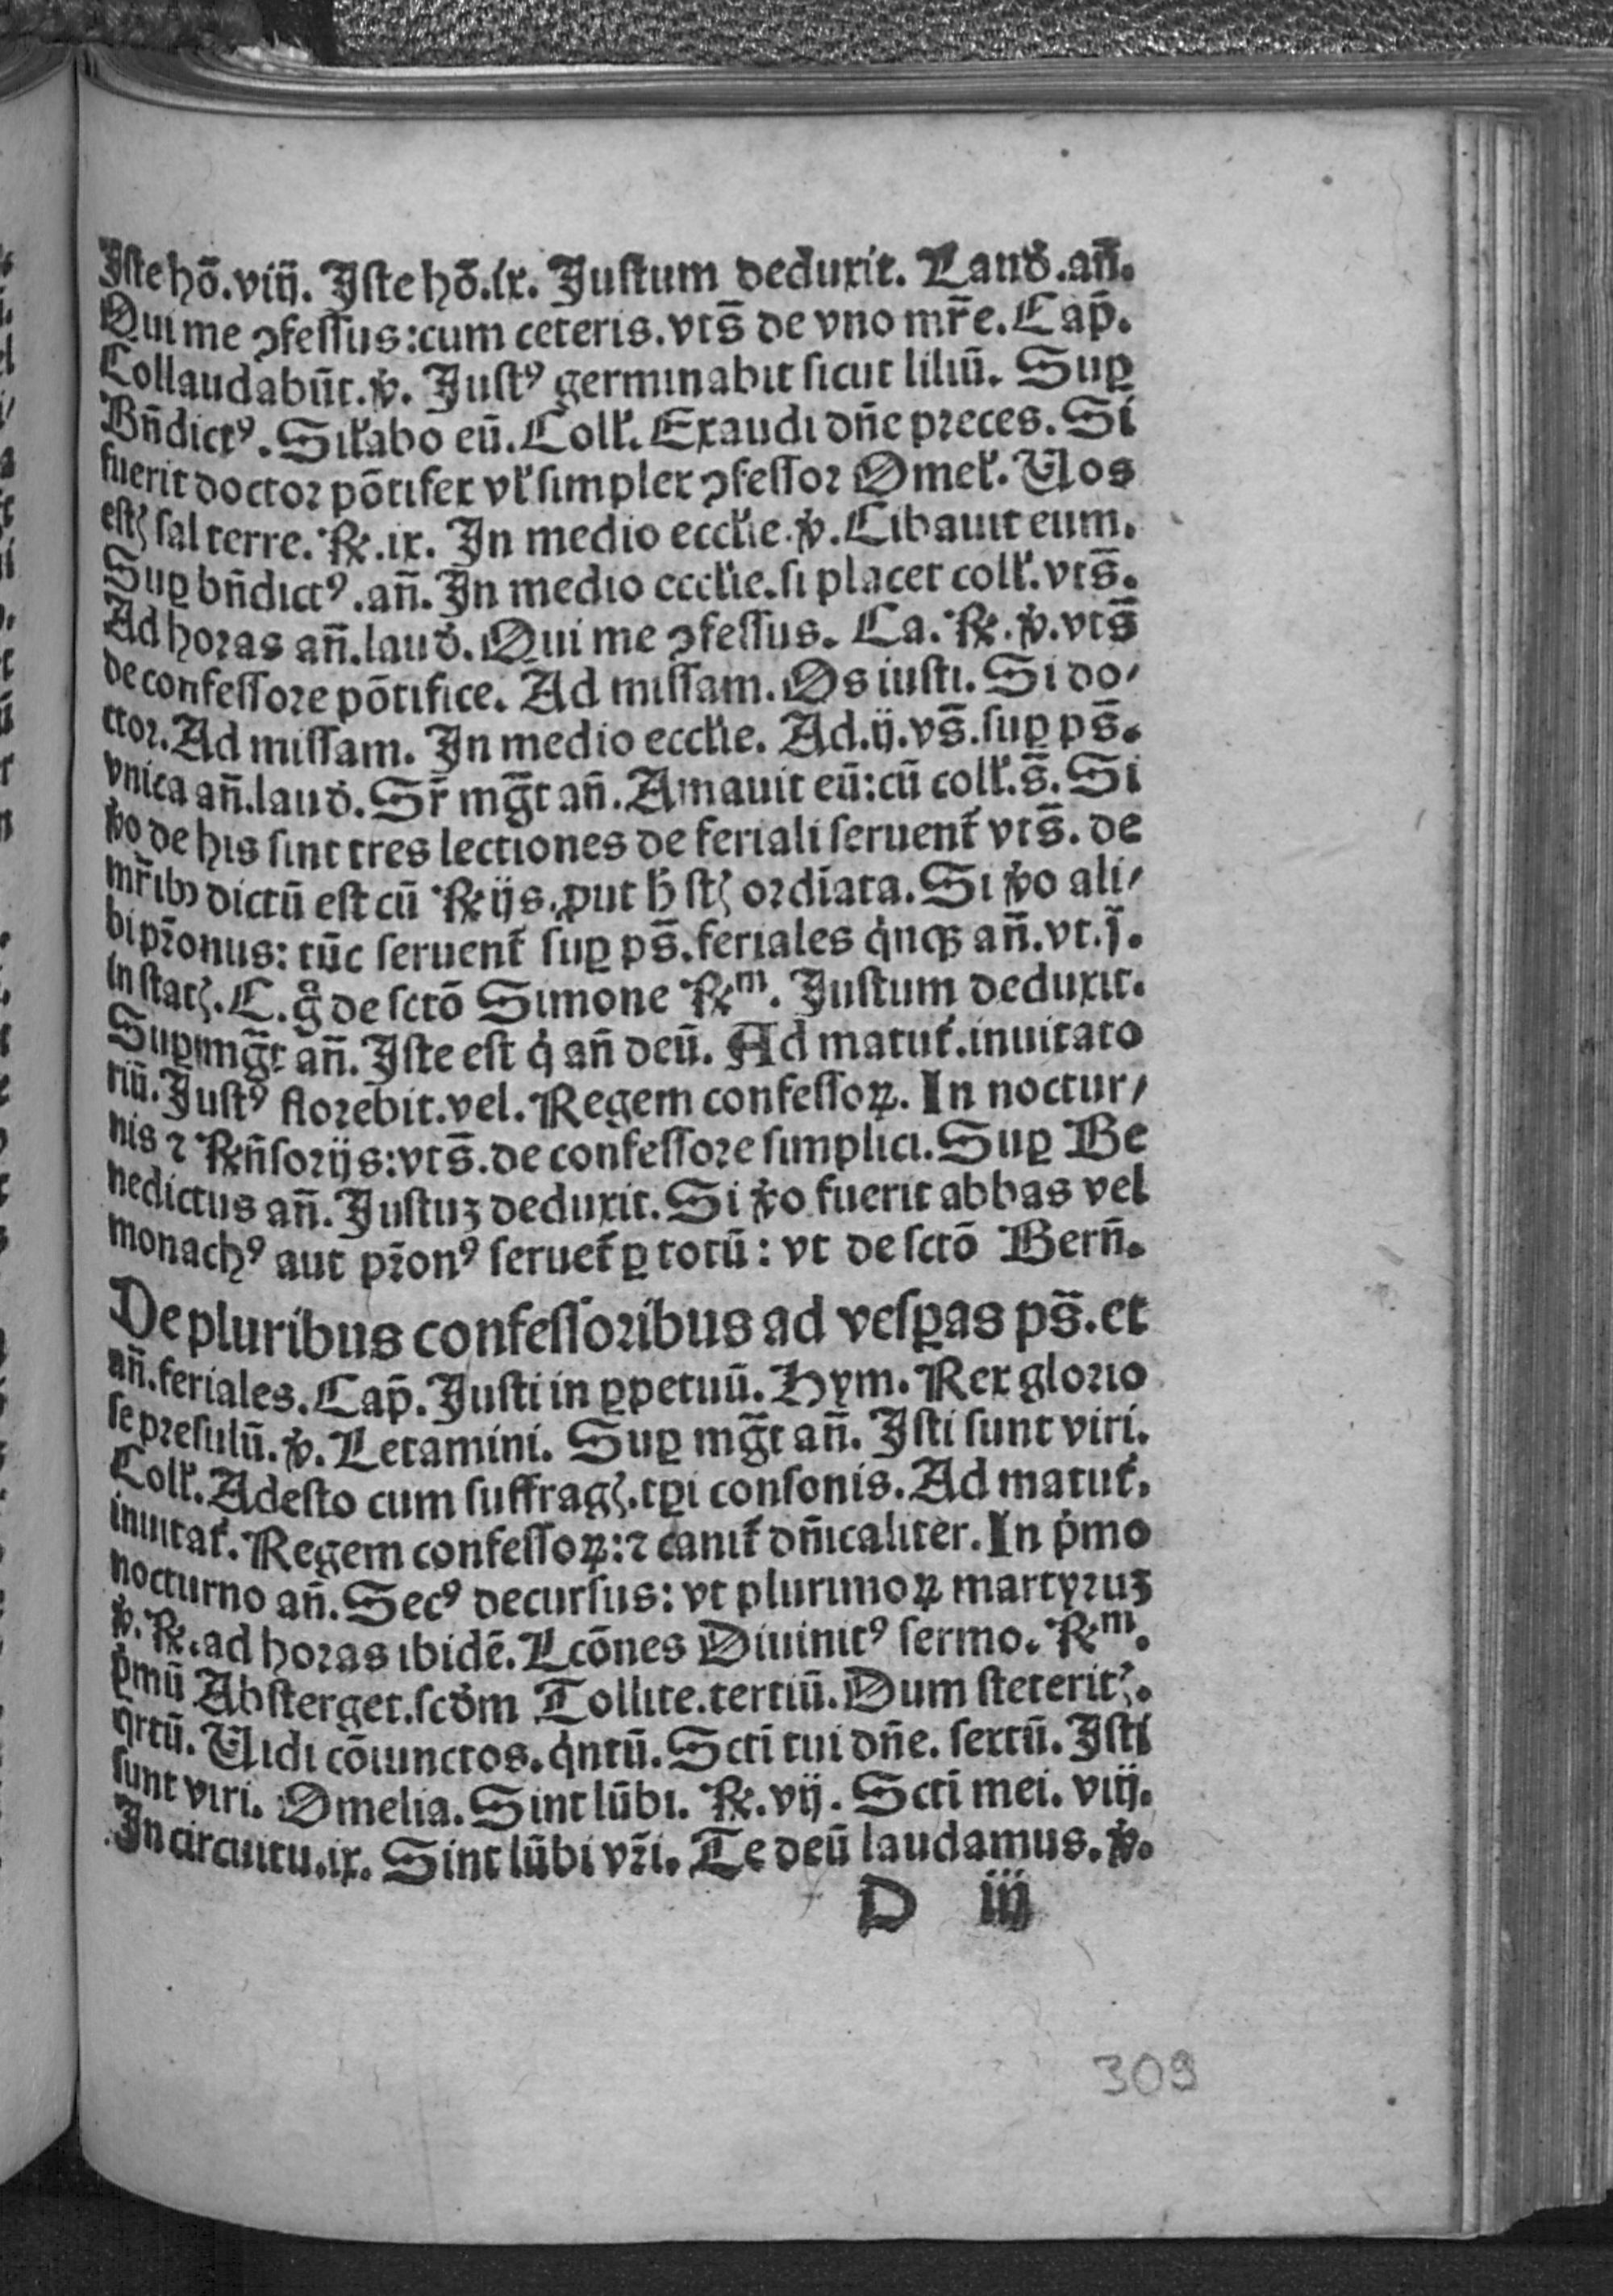 Iste hō.viij. Iste hō.ix. Iustum deduxit. Laud̛.an̄.
Qui me ꝯfessus:cum ceteris.vts̄ de vno mr̄e. Cap̄.
Collaudabūt.ꝟ. Iustꝰ germinabit sicut liliū. Suꝑ
Bn̄dictꝰ. Siĺabo eū. Colĺ. Exaudi dn̄e preces. Si
fuerit doctor pōtifex vĺ simplex ꝯfessor Omeĺ. Uos
estꝭ sal terre. ℞.ix. In medio eccĺie.ꝟ. Cibauit eum.
Suꝑ bn̄dictꝰ.an̄. In medio eccĺie.si placet colĺ.vts̄.
Ad horas an̄.laud̛. Qui me ꝯfessus. Ca. ℞.ꝟ.vts̄
de confessore pōtifice. Ad missam. Os iusti. Si do/
ctor. Ad missam. In medio eccĺie. Ad.ij.vs̄.suꝑ ps̄.
vnica an̄.laud̛. Sr̄ mḡt an̄. Amauit eū:cū colĺ.s̄. Si
ꝟo de his sint tres lectiones de feriali seruent̛ vts̄. de
mr̄ibꝫ dictū est cū ℞ijs.ꝓut h̛ stꝭ ordīata. Si ꝟo ali/
bi pr̄onus: tūc seruent̛ suꝑ ps̄.feriales qͥnqꝫ an̄.vt.j̄.
in statꝭ. C. gͦ de sctō Simone ℞ᵐ. Iustum deduxit.
Suꝑ mḡt an̄. Iste est qͥ an̄ deū. Ad matut̛.inuitato
riū. Iustꝰ florebit.vel. Regem confessoꝝ. In noctur/
nis ⁊ ℞n̄sorijs:vts̄.de confessore simplici. Suꝑ Be
nedictus an̄. Iustuꝫ deduxit. Si ꝟo fuerit abbas vel
monachꝰ aut pr̄onꝰ seruet̛ ꝑ totū: vt de sctō Bern̄.
De pluribus confessoribus ad vesꝑas ps̄.et
an̄.feriales. Cap̄. Iusti in ꝑpetuū. Hym. Rex glorio
se presulū. ꝟ. Letamini. Suꝑ mḡt an̄. Isti sunt viri.
Colĺ. Adesto cum suffragꝭ.tꝑi consonis. Ad matut̛.
inuitat̛. Regem confessoꝝ:⁊ canit̛ dn̄icaliter. In pͥmo
nocturno an̄. Secꝰ decursus: vt plurimoꝝ martyruꝫ
ꝟ. ℞.ad horas ibidē. Lcōnes Diuinitꝰ sermo. ℞ᵐ.
pͥmū Absterget.scd̛m Tollite.tertiū. Dum steteritꝭ.
qͣrtū. Uidi cōiunctos.qͥntū. Sctī tui dn̄e. sextū. Isti
sunt viri. Omelia. Sint lūbi. ℞.vij. Sctī mei. viij.
In circuitu.ix. Sint lūbi vr̄i. Te deū laudamus.ꝟ.
D iij
309